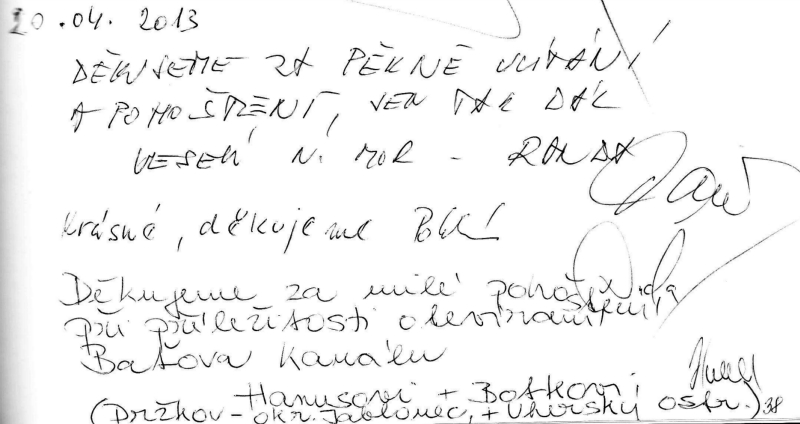 20.04. 2013
DĚKUJEME ZA PĚKNÉ UVÍTÁNÍ
A POHOŠTĚNÍ, JEN TAK DÁL
VESELÍ N. MOR - RANDA
Krásné, děkujeme
Děkujeme za milé pohoštění
při příležitosti otevírání
Baťova kanálu
Hanusovi + Botkovi
(Držkov - okr. Jablonec, + Uherský ostr.) 38